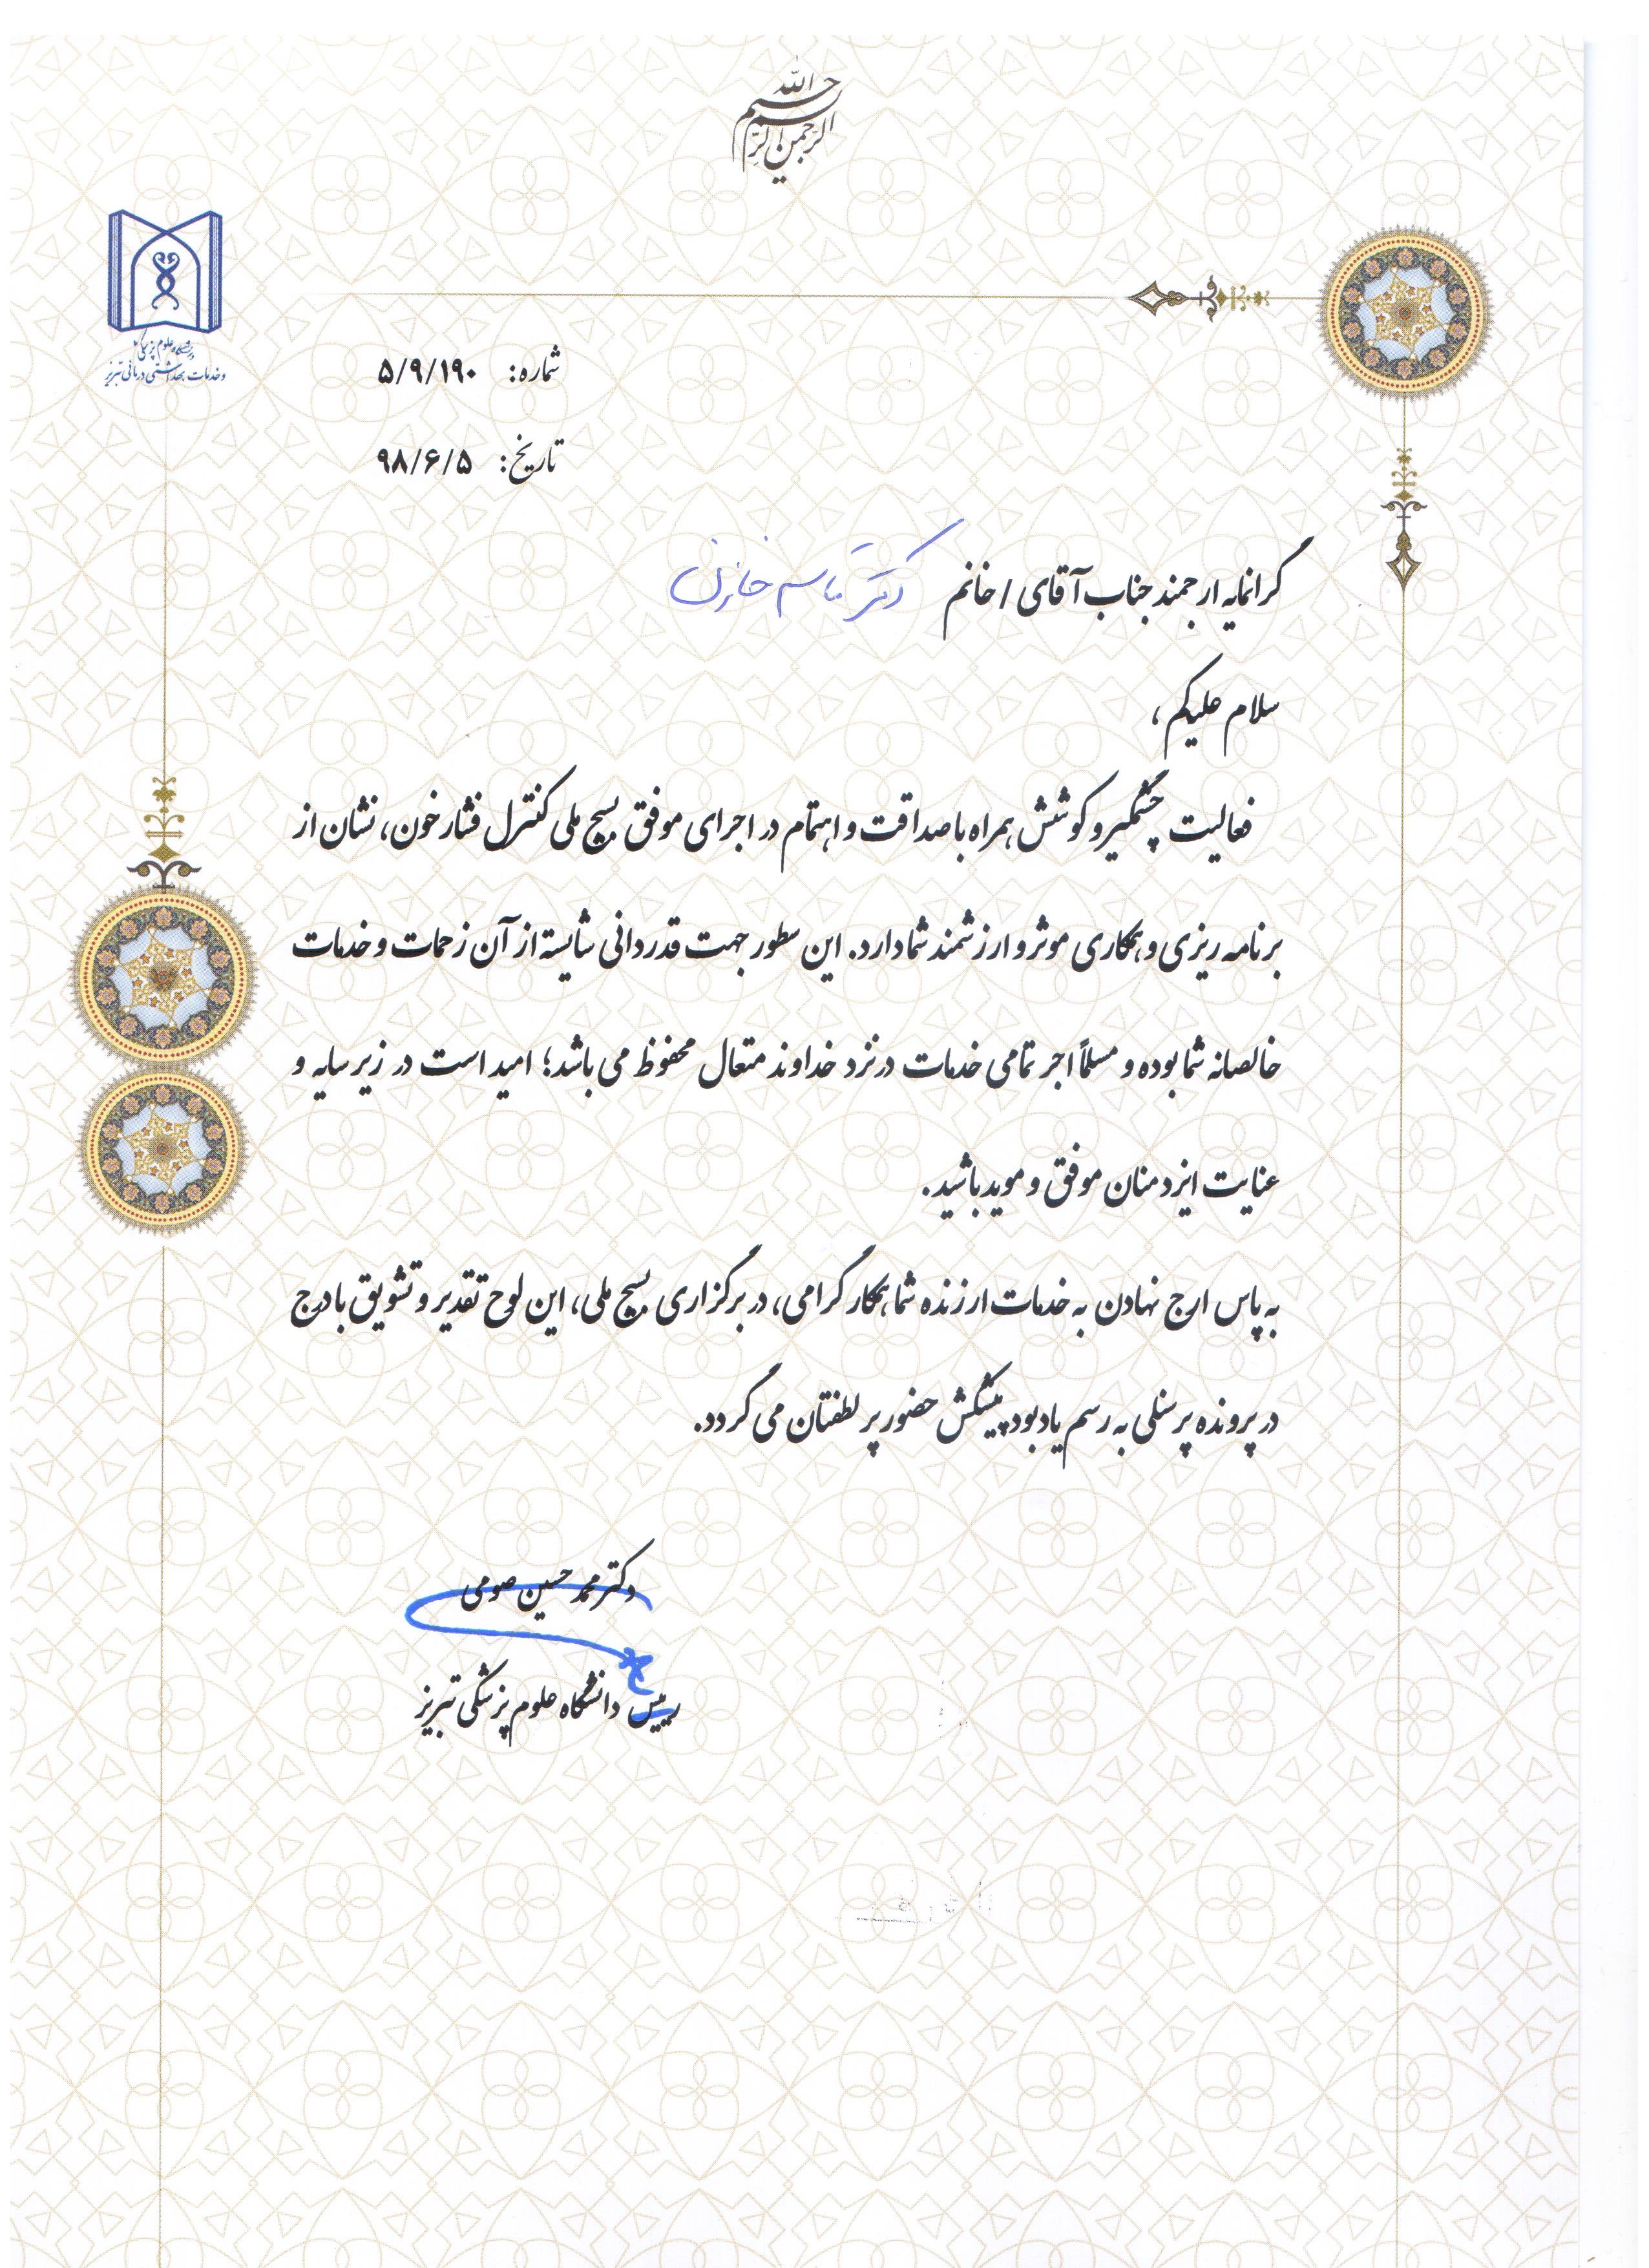 بسم الله الرحمن الرحیم
دانشگاه علوم پزشکی
و خدمات بهداشتی درمانی تبریز
شماره: ۵/۹/۱۹۰
تاریخ: ۹۸/۶/۵
گرانمایه ارجمند جناب آقای / خانم دکتر قاسم خازنی
سلام علیکم،
فعالیت چشمگیر و کوشش همراه با صداقت و اهتمام در اجرای موفق بسیج ملی کنترل فشار خون، نشان از
برنامه ریزی و همکاری موثر و ارزشمند شما دارد. این سطور جهت قدردانی شایسته از آن زحمات و خدمات
خالصانه شما بوده و مسلماً اجر تمامی خدمات در نزد خداوند متعال محفوظ می باشد؛ امید است در زیر سایه و
عنایت ایزد منان موفق و موید باشید.
به پاس ارج نهادن به خدمات ارزنده شما همکار گرامی، در برگزاری بسیج ملی، این لوح تقدیر و تشویق با درج
در پرونده پرسنلی به رسم یادبود پیشکش حضور پر لطفتان می گردد.
دکتر محمد حسین صومی
رییس دانشگاه علوم پزشکی تبریز